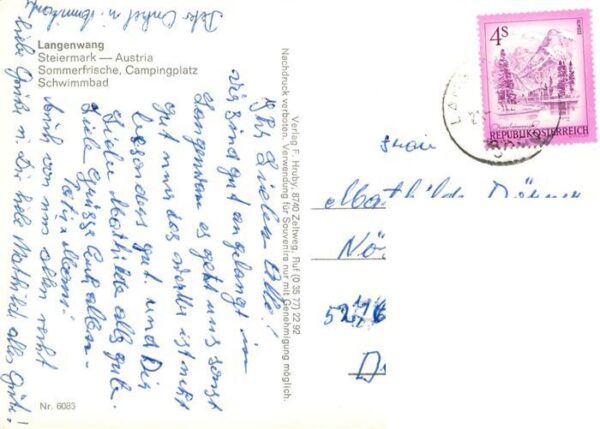 Langenwang
Steiermark — Austria
Sommerfrische, Campingplatz
Schwimmbad
Nr. 6083
Verlag F. Hruby, 8740 Zeltweg, Ruf (0 35 77) 22 92
Nachdruck verboten. Verwendung für Souvenirs nur mit Genehmigung möglich.
4s
REPUBLIK ÖSTERREICH
Ihr Lieben Alle!
Wir sind gut angelangt in
Langenwang es geht uns sonst
gut nur das Wetter ist nicht
besonders gut. und Dir
liebe Mathilde alles gute.
Liebe Grüsse Euch allen
auch von uns allen
liebe Grüße u. Dir liebe Mathild alles Gute!
Frau
Mathilde